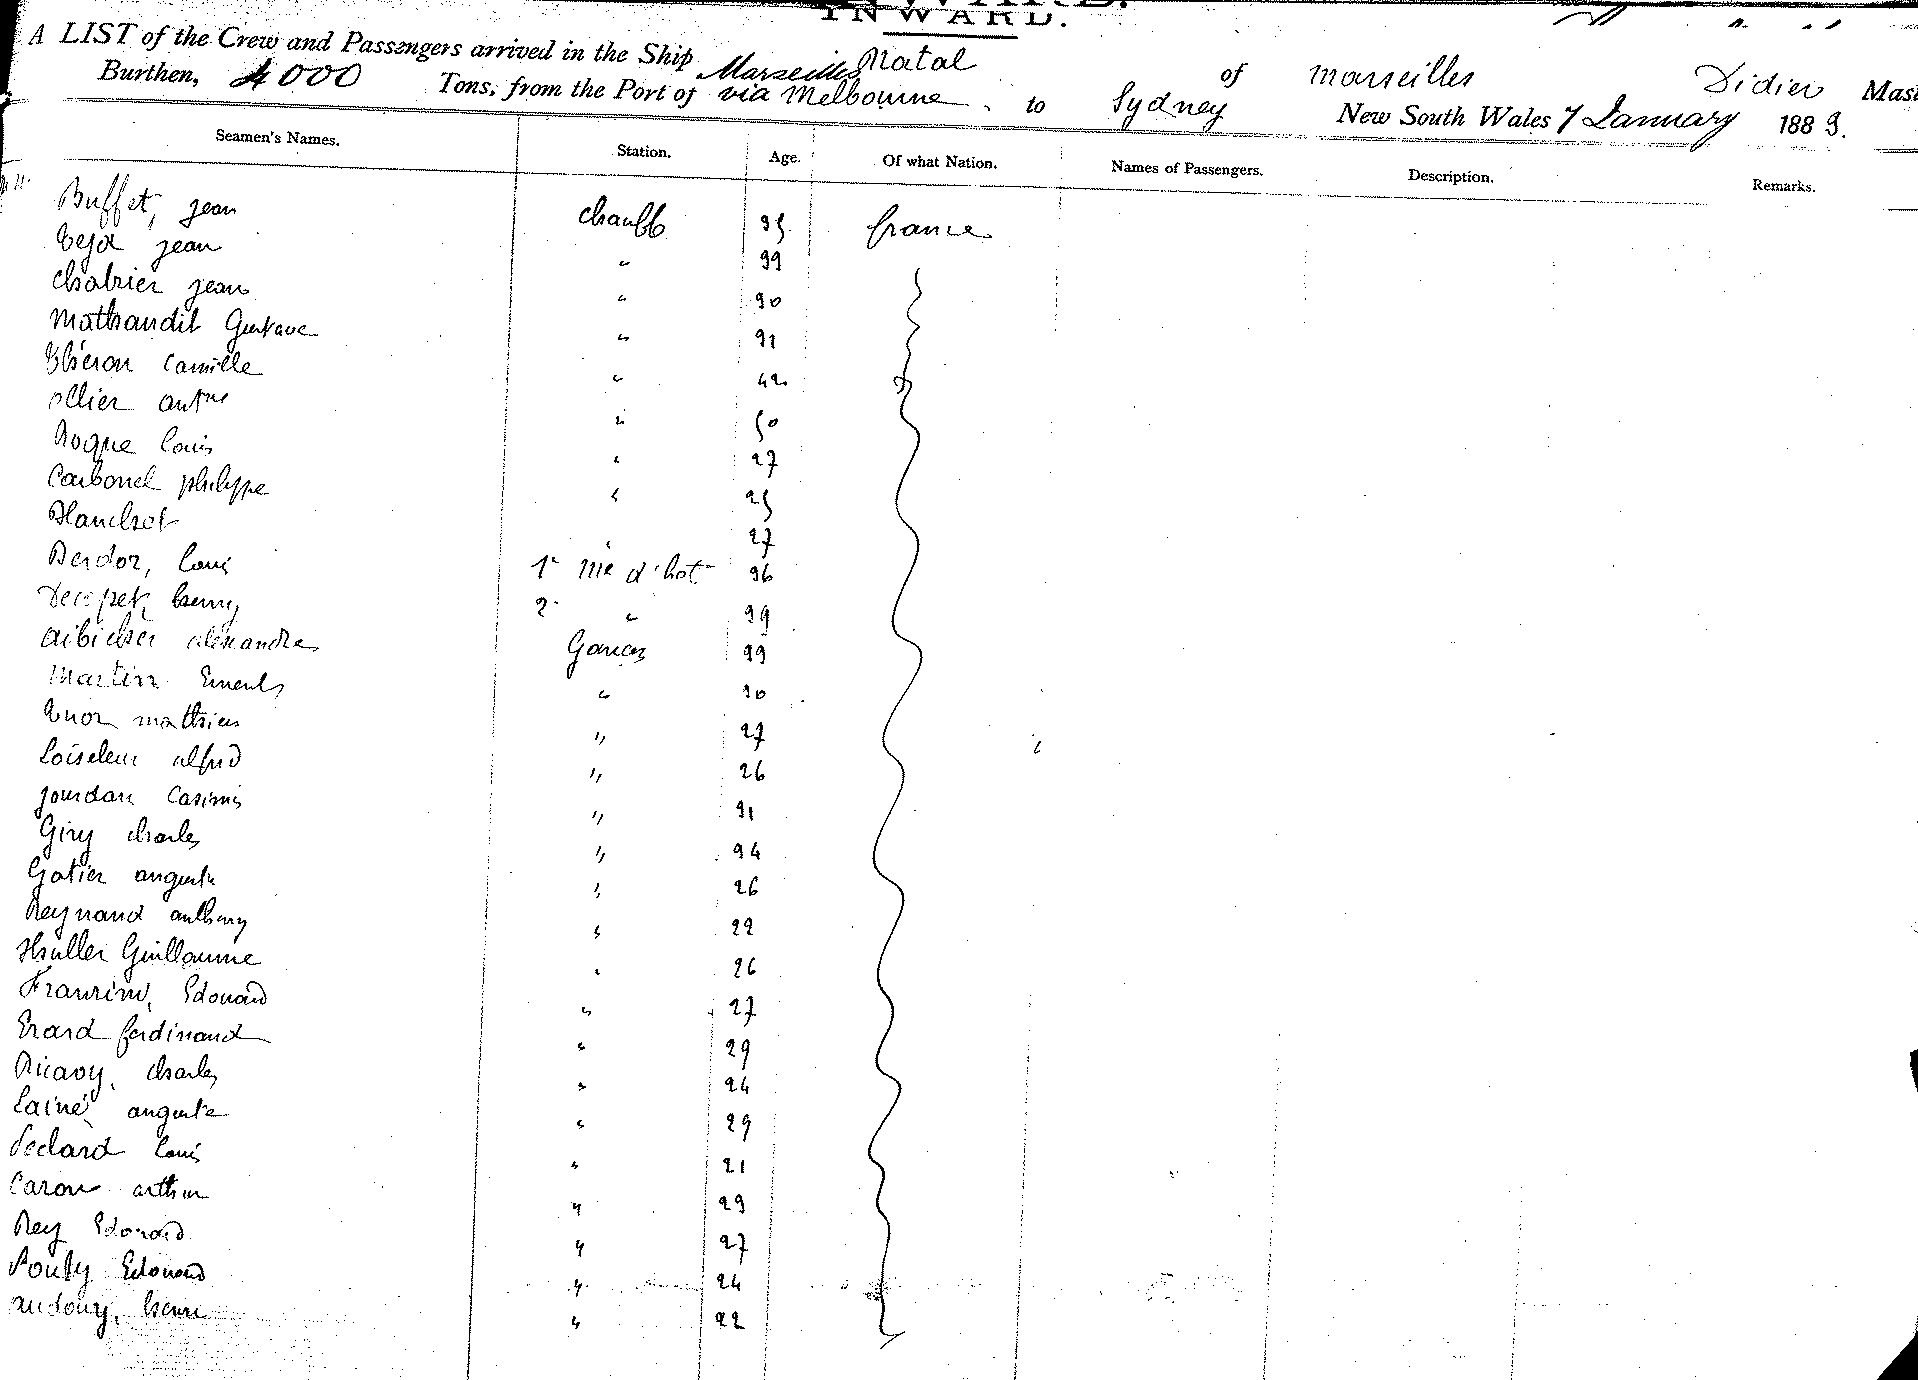 INWARD.
A LIST of the Crew and Passengers arrived in the Ship Natal of Marseilles Didier Mast
Burthen, 4000 Tons, from the Port of Marseilles via Melbourne to Sydney New South Wales 7 January 1889.
Seamen's Names. Station. Age. Of what Nation. Names of Passengers. Description. Remarks.
Buffet, jean chauff 35 france
jean " 39
chabrier jean " 30
Gustave " 31
camille " 42
ollier " 50
Roque louis " 27
Carbonel philippe " 25
Blanchet " 27
Berdoz, louis 1r Me d'hot 36
henry 2 " 39
alexandre Garcon
Martin Ernest "
mathieu " 27
Loiseleur alfred " 26
jourdan Casimir " 31
Giry charles " 34
Gatier auguste " 26
Reynaud anthony " 22
Guillaume " 26
Edouard " 27
Erard ferdinand " 29
Ricavy, charles " 24
Lainé auguste " 29
louis " 21
Caron arthur " 23
Rey Edouard " 27
Edouard " 24
audouy, henri " 22